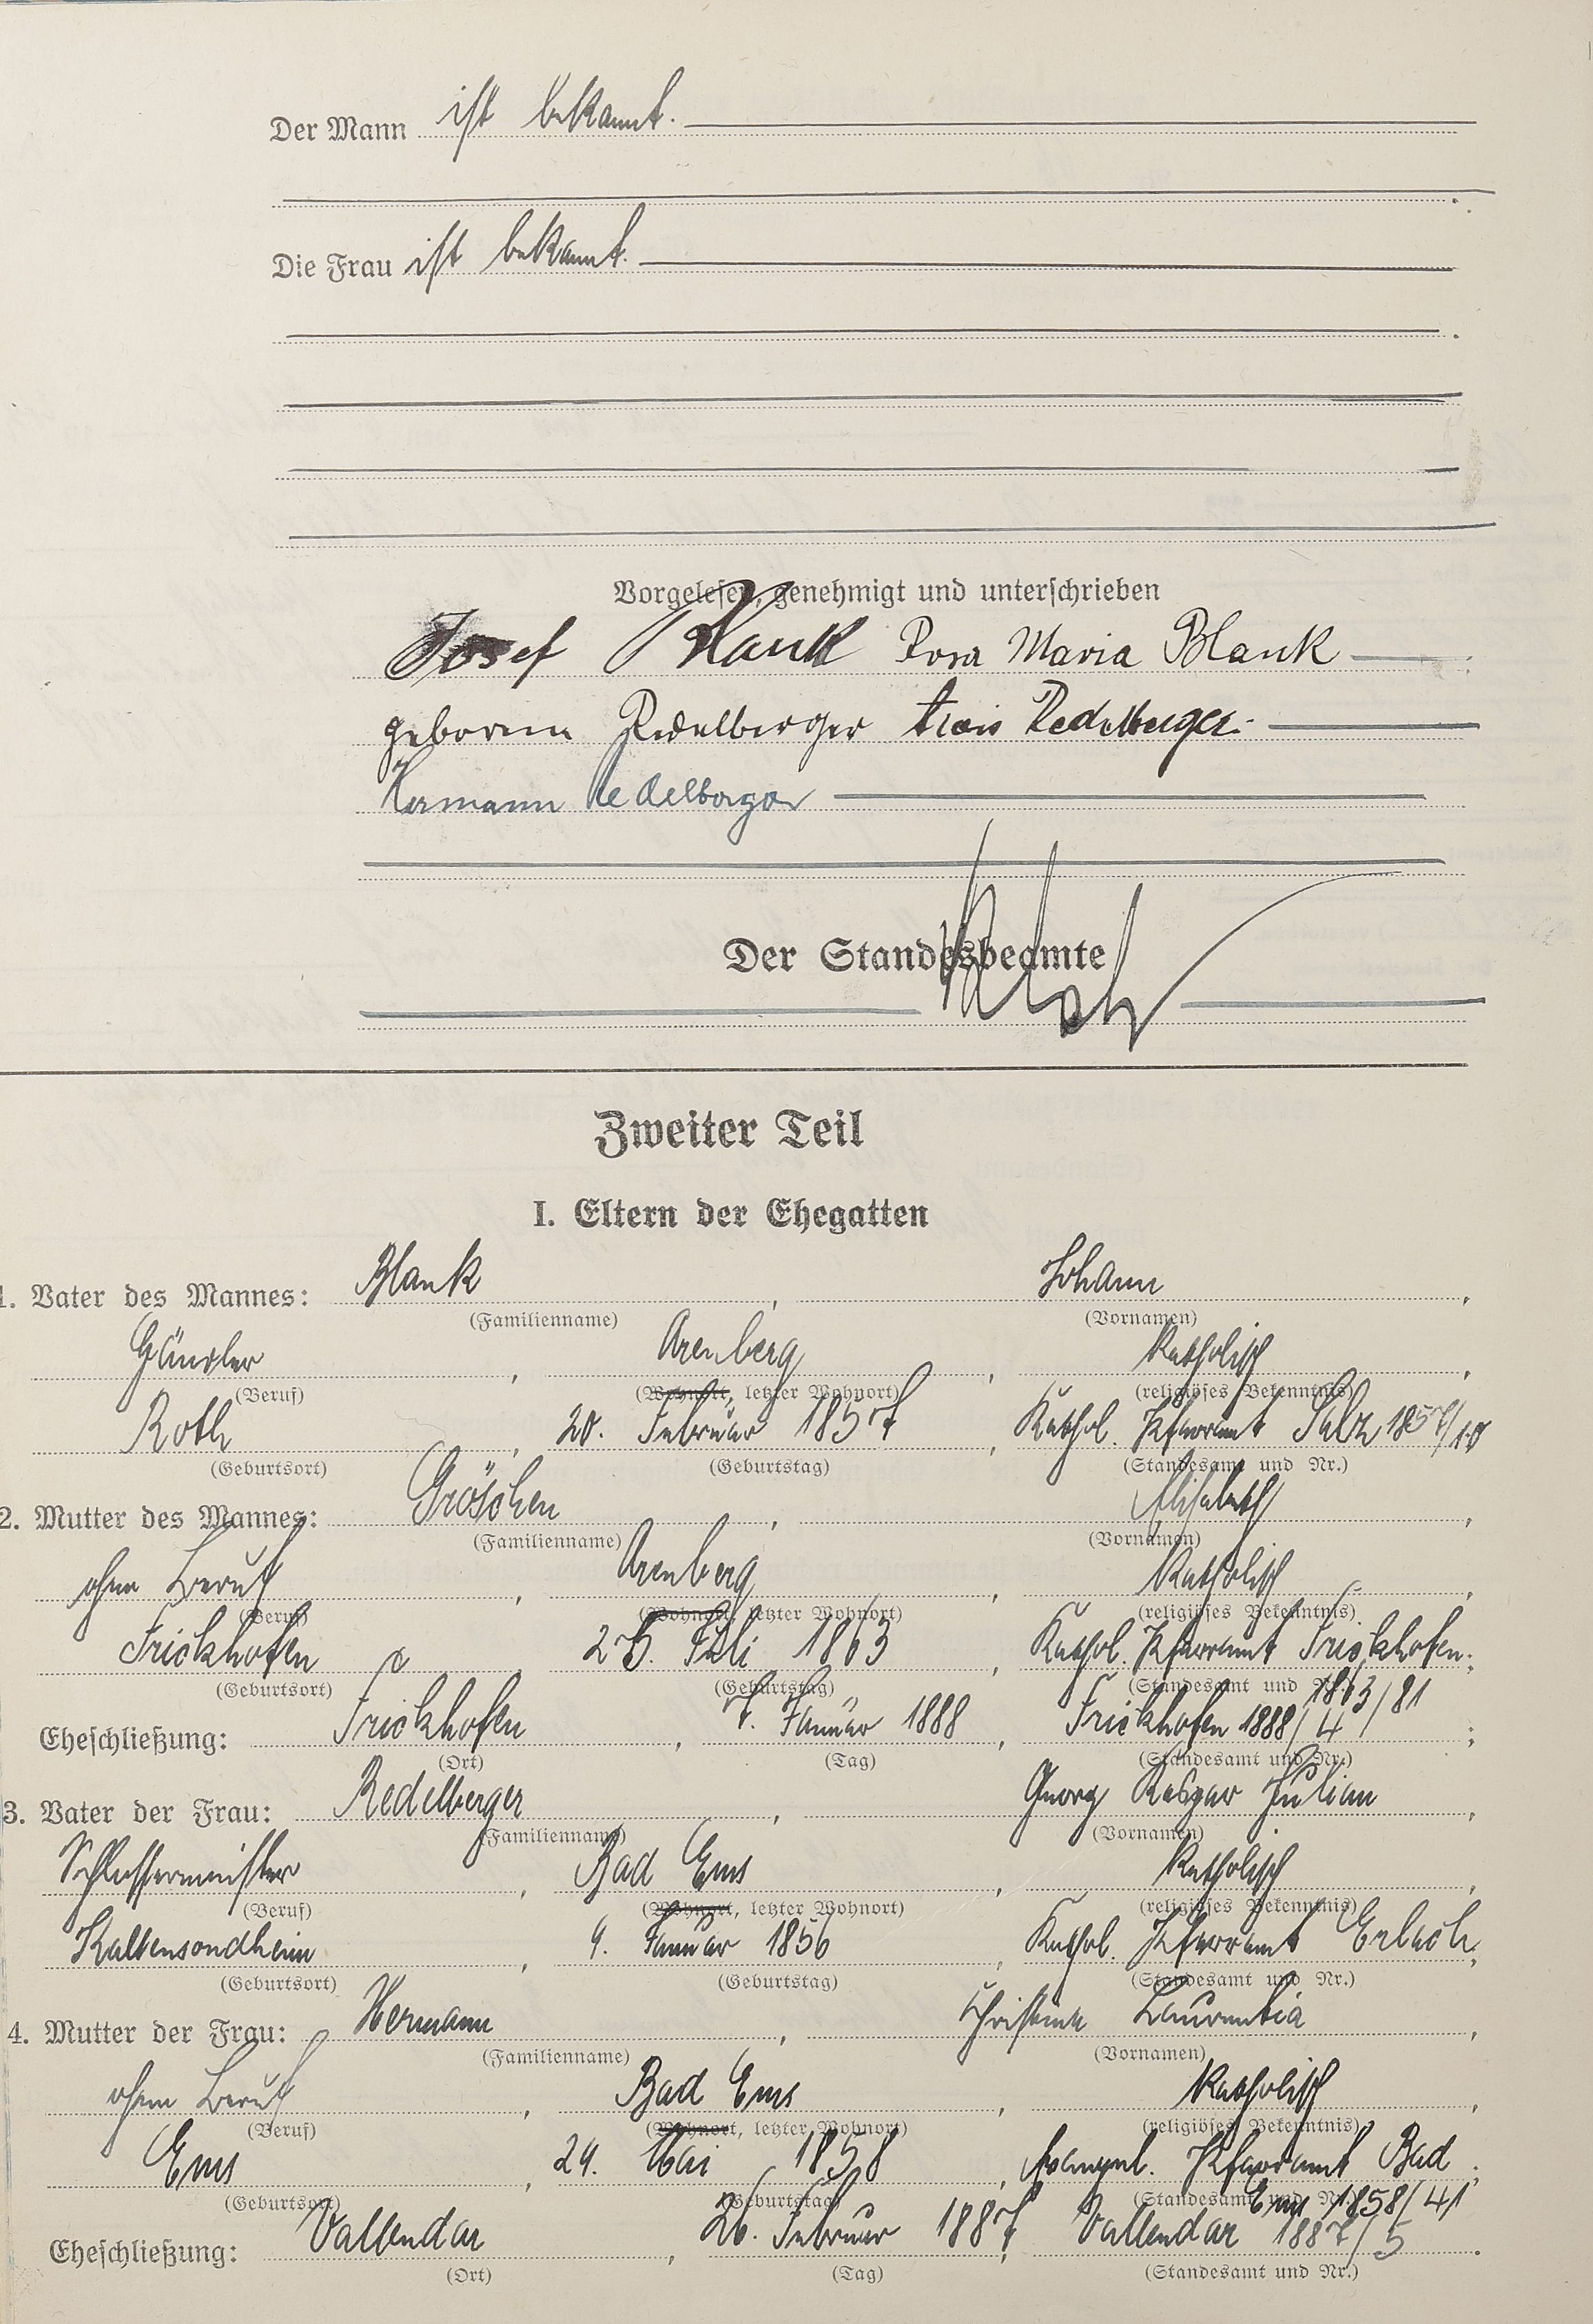 Der Mann ist bekannt.
Die Frau ist bekannt.
Vorgelesen, genehmigt und unterschrieben
Josef Blank Rosa Maria Blank
geborene Redelberger Redelberger.
Hermann Redelberger
Der Standesbeamte
Zweiter Teil
I. Eltern der Ehegatten
1. Vater des Mannes: Blank, Johann,
(Familienname) (Vornamen)
Händler, Arenberg, Katholisch,
(Beruf) (Wohnort, letzter Wohnort) (religiöses Bekenntnis)
Roth, 20. Februar 1857, Kathol. Pfarramt Salz 1857/10
(Geburtsort) (Geburtstag) (Standesamt und Nr.)
2. Mutter des Mannes: Gröschen, Elisabeth,
(Familienname) (Vornamen)
ohne Beruf, Arenberg, Katholisch,
(Beruf) (Wohnort, letzter Wohnort) (religiöses Bekenntnis)
Frickhofen, Juli 1863, Kathol. Pfarramt Frickhofen;
(Geburtsort) (Geburtstag) (Standesamt und Nr.) 1863/81
Eheschließung: Frickhofen, 7. Januar 1888, Frickhofen 1888/4;
(Ort) (Tag) (Standesamt und Nr.)
3. Vater der Frau: Redelberger, Georg Kaspar Julian,
(Familienname) (Vornamen)
Schlossermeister, Bad Ems, Katholisch,
(Beruf) (Wohnort, letzter Wohnort) (religiöses Bekenntnis)
Kaltensondheim, 9. Januar 1856, Kathol. Pfarramt Erlach;
(Geburtsort) (Geburtstag) (Standesamt und Nr.)
4. Mutter der Frau: Hermann, Christina Laurentia,
(Familienname) (Vornamen)
ohne Beruf, Bad Ems, Katholisch,
(Beruf) (Wohnort, letzter Wohnort) (religiöses Bekenntnis)
Ems, 29. Mai 1858, Evangel. Pfarramt Bad;
(Geburtsort) (Geburtstag) (Standesamt und Nr.) Ems 1858/41
Eheschließung: Vallendar, 26. Februar 1887, Vallendar 1887/5.
(Ort) (Tag) (Standesamt und Nr.)